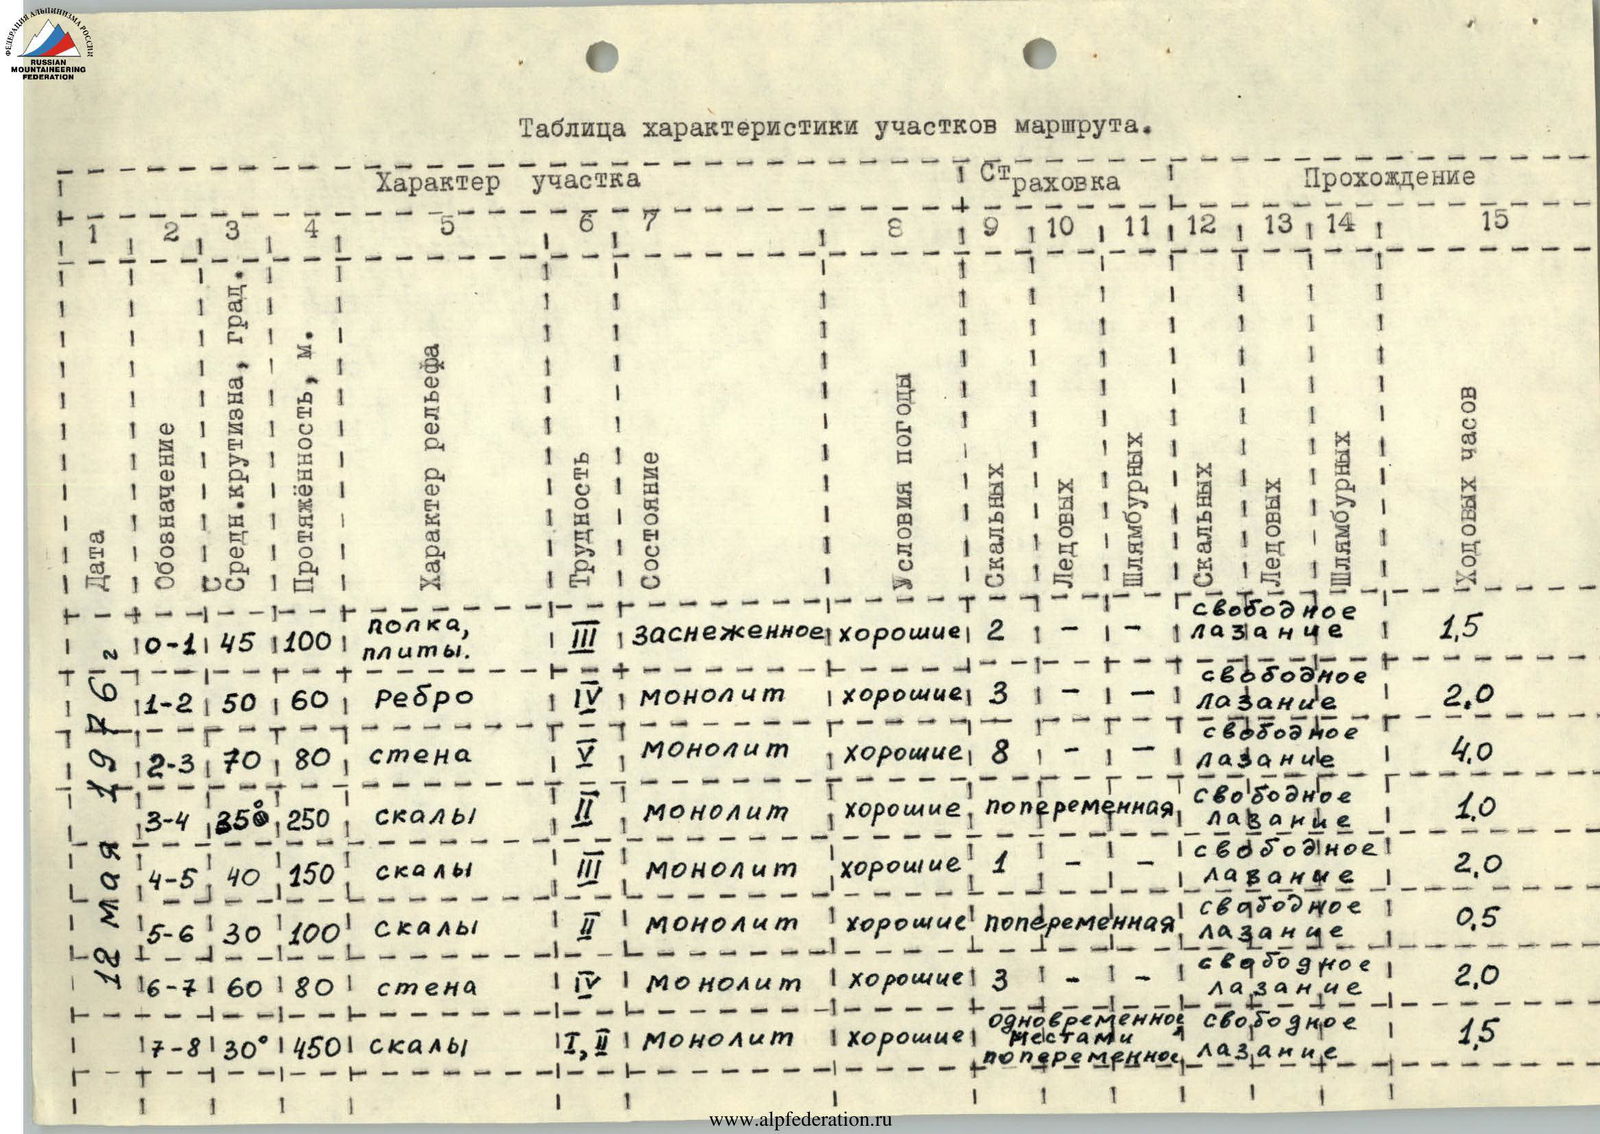 ФЕДЕРАЦИЯ АЛЬПИНИЗМА РОССИИ
RUSSIAN
MOUNTAINEERING
FEDERATION
Таблица характеристики участков маршрута.
Характер участка Страховка Прохождение
1 2 3 4 5 6 7 8 9 10 11 12 13 14 15
Дата
Обозначение
Средн.крутизна, град.
Протяжённость, м.
Характер рельефа
Трудность
Состояние
Условия погоды
Скальных
Ледовых
Шлямбурных
Скальных
Ледовых
Шлямбурных
Ходовых часов
12 мая 1976 г
0-1 45 100 полка, плиты. III заснеженное хорошие 2 - - свободное лазание 1,5
1-2 50 60 ребро IV монолит хорошие 3 - - свободное лазание 2,0
2-3 70 80 стена V монолит хорошие 8 - - свободное лазание 4,0
3-4 35° 250 скалы II монолит хорошие попеременная свободное лазание 1,0
4-5 40 150 скалы III монолит хорошие 1 - - свободное лазание 2,0
5-6 30 100 скалы II монолит хорошие попеременная свободное лазание 0,5
6-7 60 80 стена IV монолит хорошие 3 - - свободное лазание 2,0
7-8 30° 450 скалы I, II монолит хорошие одновременное местами попеременное свободное лазание 1,5
www.alpfederation.ru